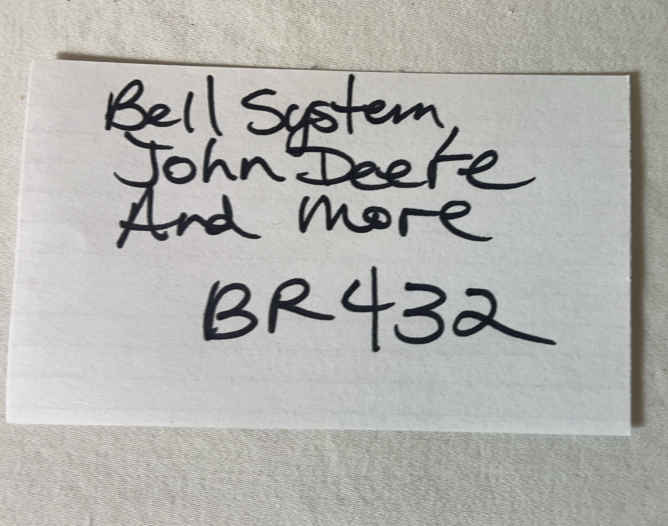 Bell System,
John Deere
And More
BR432